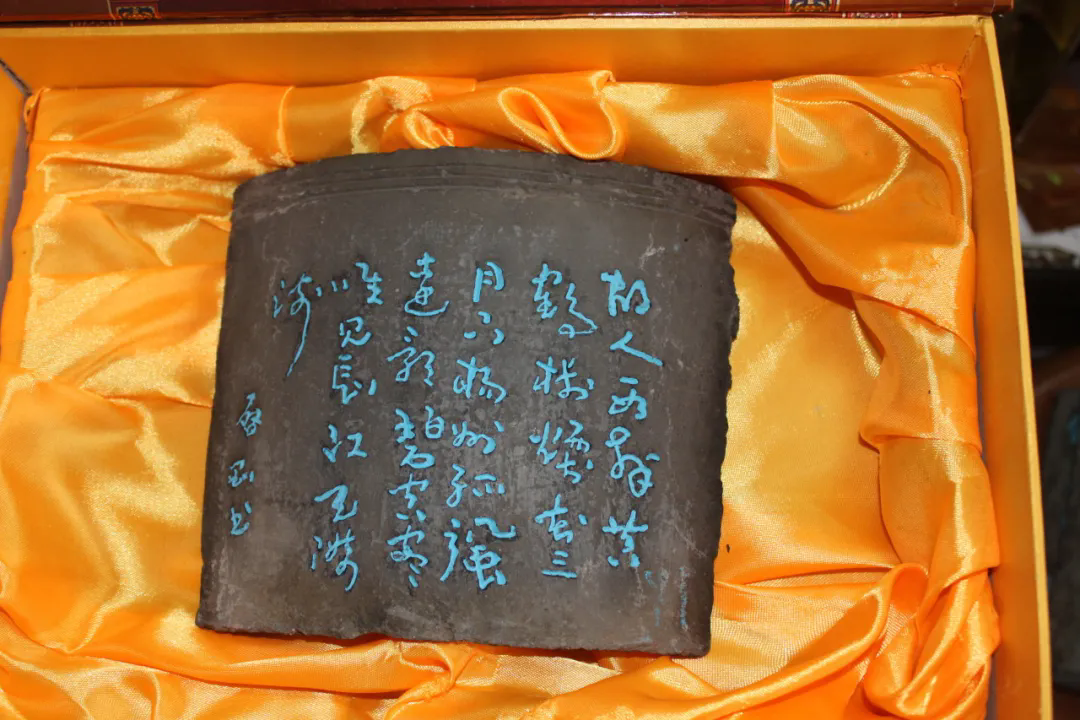 故人西辞黄
鹤楼烟花三
月下扬州孤帆
远影碧空尽
唯见长江天际
流
书